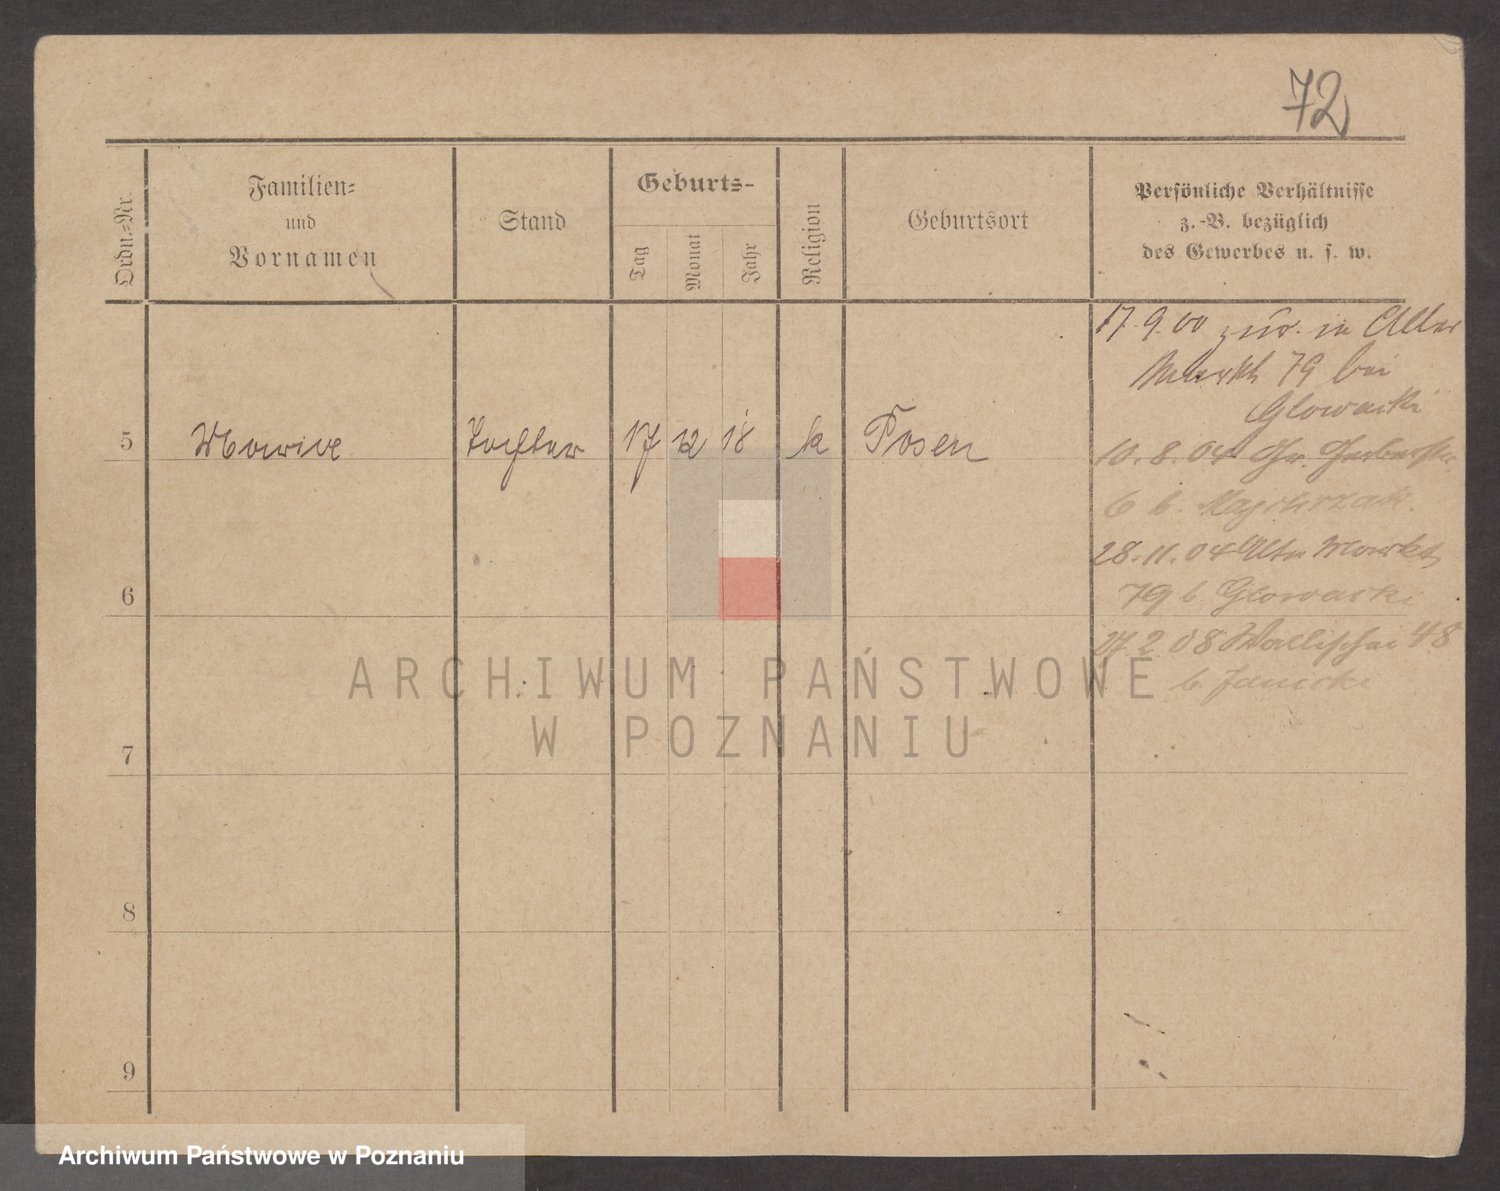 72
Ordn.-Nr.
Familien-
und
Vornamen
Stand
Geburts-
Tag
Monat
Jahr
Religion
Geburtsort
Persönliche Verhältnisse
z. B. bezüglich
des Gewerbes u. s. w.
17.9.00 zur. in Alter
Markt 79 bei
Glowacki
5 Tochter 17 12 18 k Posen
10.8.04 Gr. Gerberstr.
6 b. Majchrzak.
28.11.04 Alter Markt
79 b Glowacki
6
27.2.08 Wallischei 48
b. Janicki
ARCHIWUM PAŃSTWOWE
W POZNANIU
7
8
9
Archiwum Państwowe w Poznaniu